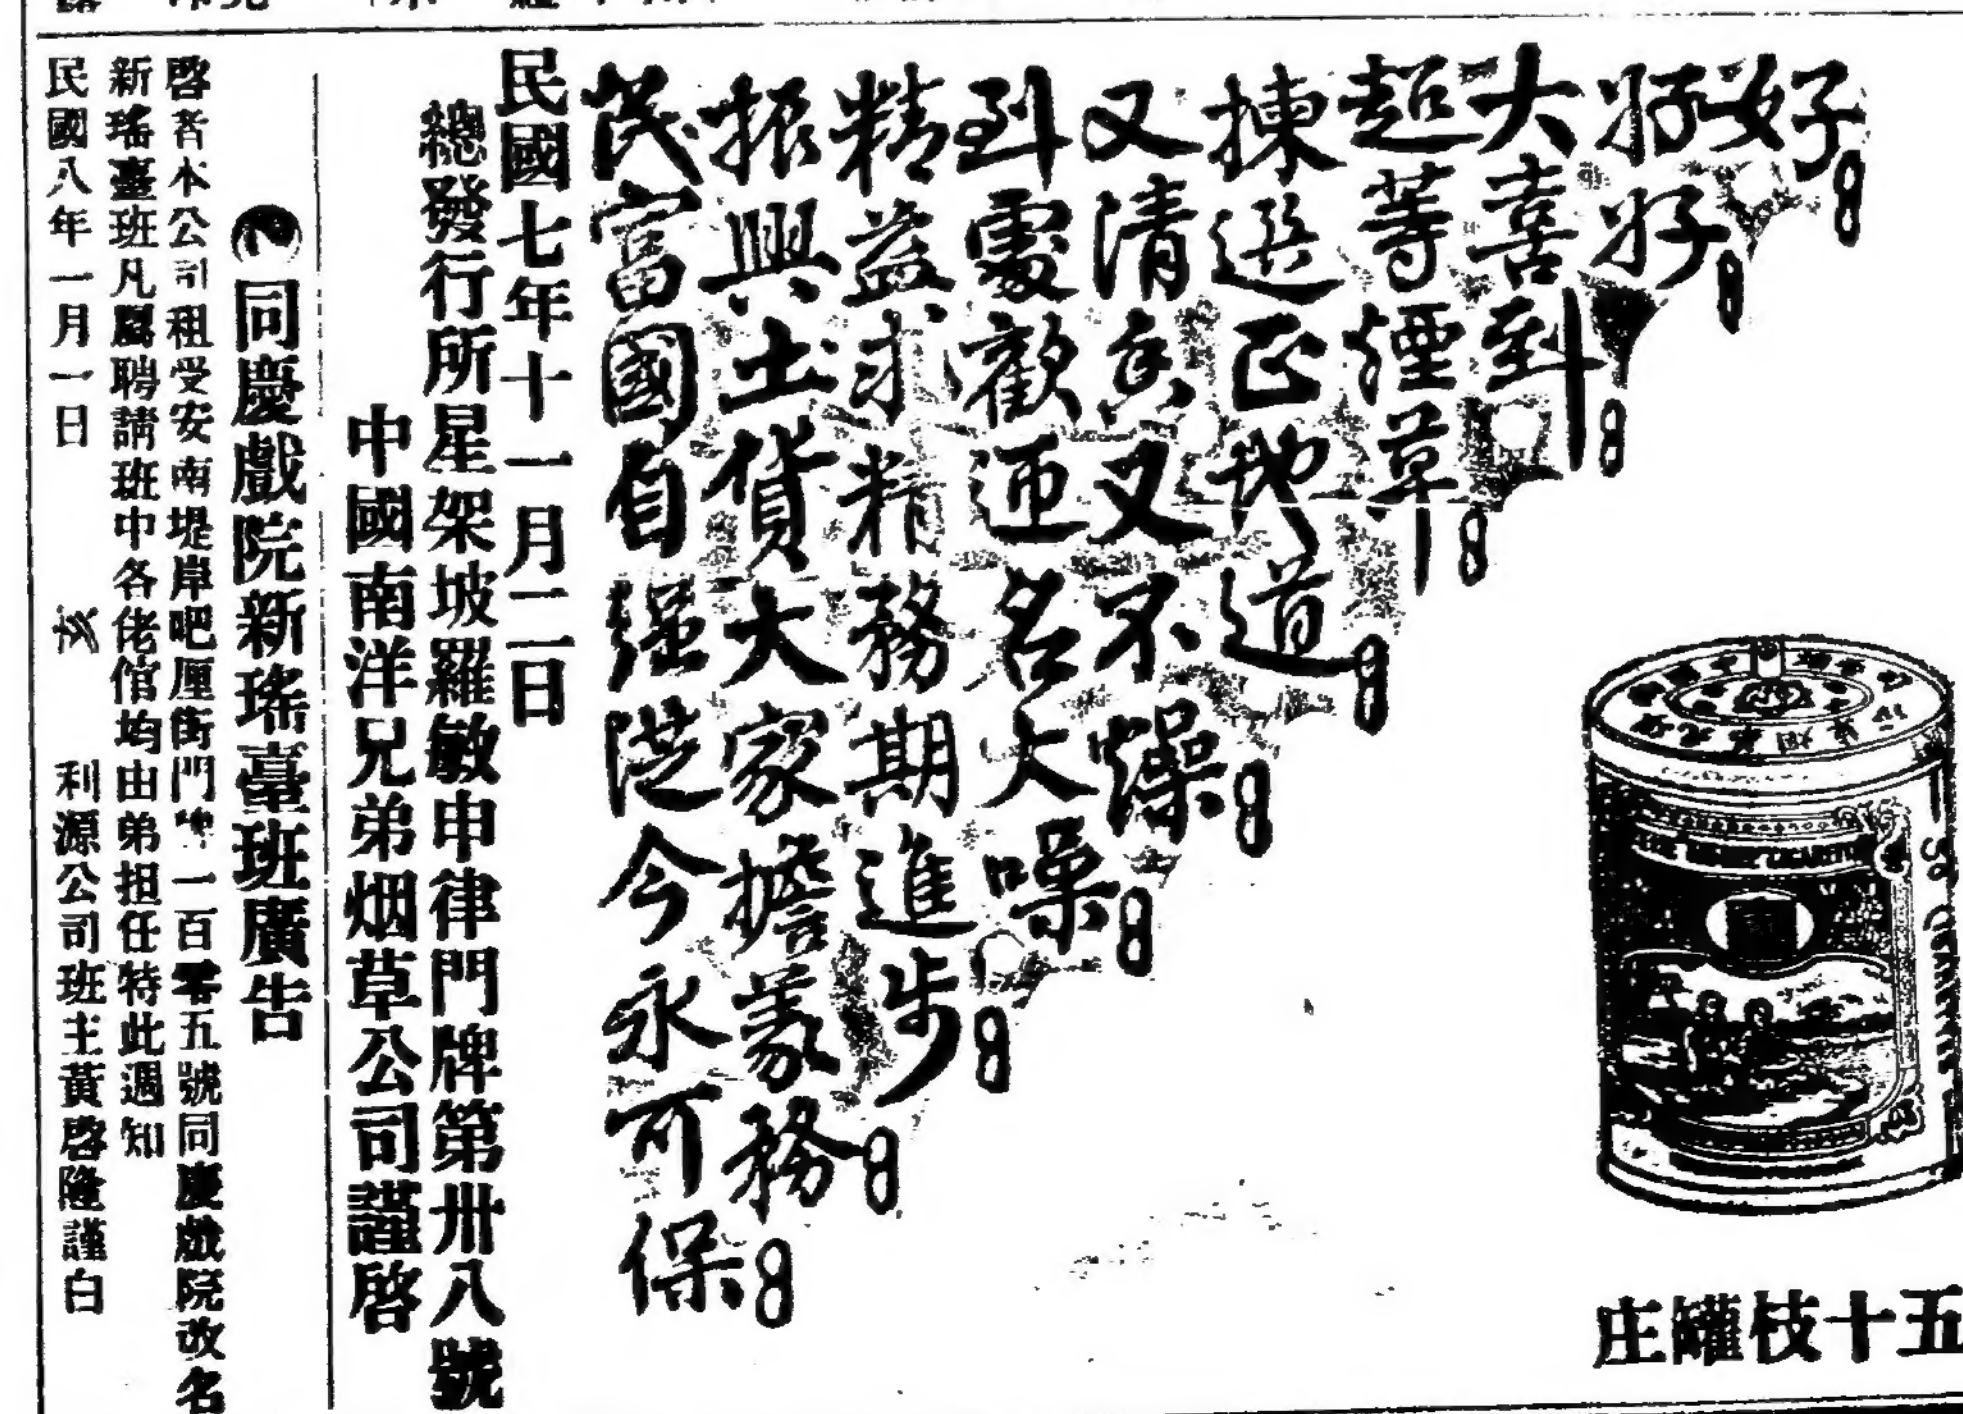 好
好好
大喜到
超等煙草
揀選正地道
又清香又不燥
到處歡迎名大噪
精益求精務期進步
振興土貨大家擔義務
民富國自强從今永可保
五十枝罐庄
民國七年十一月二日
總發行所星架坡羅敏申律門牌第卅八號
中國南洋兄弟烟草公司謹啓
同慶戲院新瑤臺班廣告
啓者本公司租受安南堤岸吧厘街門牌一百零五號同慶戲院改名
新瑤臺班凡關聘請班中各佬倌均由弟担任特此週知
民國八年一月一日
利源公司班主黃啓隆謹白